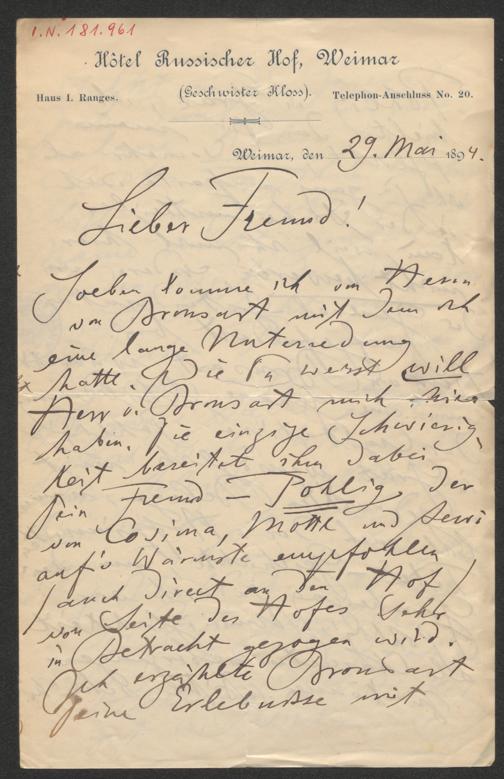 I.N. 181.961
Hôtel Russischer Hof, Weimar
(Geschwister Kloss).
Haus I. Ranges.
Telephon-Anschluss No. 20.
Weimar, den 29. Mai 1894.
Lieber Freund!
Soeben komme ich von Herrn
von Bronsart mit dem ich
eine lange Unterredung
hatte. Wie Du weisst will
Herr v. Bronsart mich hier
haben. Die einzige Schwierig
keit bereitet ihm dabei
Dein Freund – Pohlig, der
von Cosima, Mottl und Levi
auf's Wärmste empfohlen
(auch direct an den Hof)
von Seite des Hofes sehr
in Betracht gezogen wird.
Ich erzählte Bronsart
Deine Erlebnisse mit